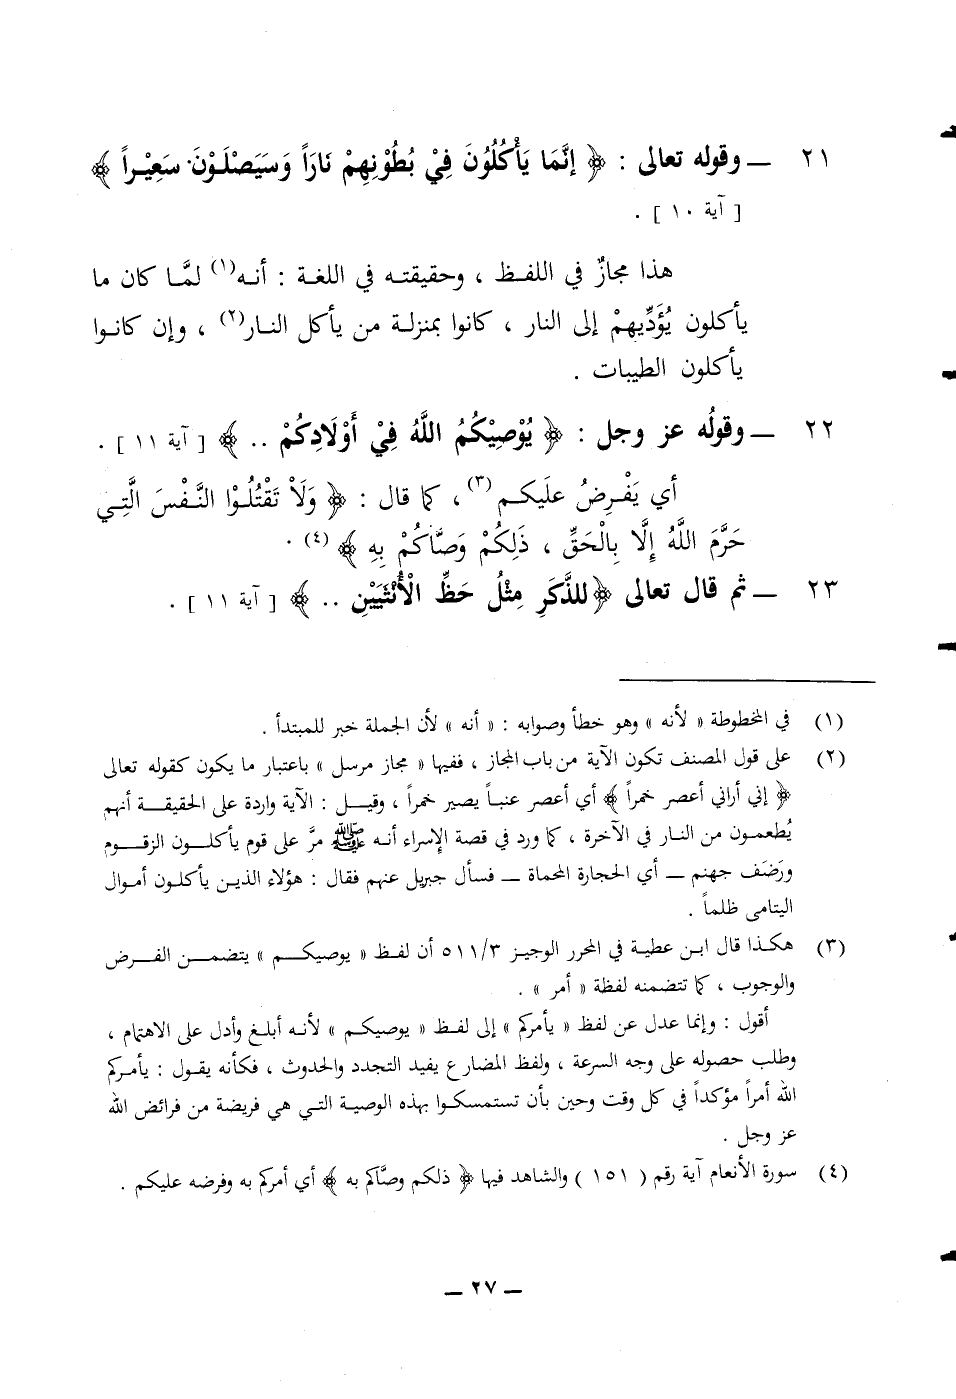 ٢١ ـ وقوله تعالى : ﴿ إنَّمَا يَأْكُلُونَ فِيْ بُطُوْنِهِمْ نَارَاً وَسَيَصْلَوْنَ سَعِيْراً ﴾
[ آية ١٠ ] .
هذا مجازٌ في اللفظ ، وحقيقته في اللغة : أنه(١) لمَّا كان ما
يأكلون يُؤدِّيهمْ إلى النار ، كانوا بمنزلة من يأكل النار(٢) ، وإن كانوا
يأكلون الطيبات .
٢٢ ـ وقولُه عز وجل : ﴿ يُوْصِيْكُمُ اللَّهُ فِيْ أَوْلَادِكُمْ .. ﴾ [ آية ١١ ] .
أي يَفْرِضُ علَيكم(٣) ، كما قال : ﴿ وَلَاْ تَقْتُلُوْا النَّفْسَ الَّتِي
حَرَّمَ اللَّهُ إِلَّا بِالْحَقِّ ، ذَلِكُمْ وَصَّاكُمْ بِهِ ﴾ (٤) .
٢٣ ـ ثم قال تعالى ﴿ للذَّكَرِ مِثْلُ حَظِّ الْأُنْثَيَيْنِ .. ﴾ [ آية ١١ ] .
(١) في المخطوطة « لأنه » وهو خطأ وصوابه : « أنه » لأن الجملة خبر للمبتدأ .
(٢) على قول المصنف تكون الآية من باب المجاز ، ففيها « مجاز مرسل » باعتبار ما يكون كقوله تعالى
﴿ إني أراني أعصر خمراً ﴾ أي أعصر عنباً يصير خمراً ، وقيل : الآية واردة على الحقيقة أنهم
يُطعمون من النار في الآخرة ، كما ورد في قصة الإسراء أنه ﷺ مرَّ على قوم يأكلون الزقوم
ورَضَف جهنم ـ أي الحجارة المحماة ـ فسأل جبريل عنهم فقال : هؤلاء الذين يأكلون أموال
اليتامى ظلماً .
(٣) هكذا قال ابن عطية في المحرر الوجيز ٥١١/٣ أن لفظ « يوصيكم » يتضمن الفرض
والوجوب ، كما تتضمنه لفظة « أمر » .
أقول : وإنما عدل عن لفظ « يأمركم » إلى لفظ « يوصيكم » لأنه أبلغ وأدل على الاهتمام ،
وطلب حصوله على وجه السرعة ، ولفظ المضارع يفيد التجدد والحدوث ، فكأنه يقول : يأمركم
الله أمراً مؤكداً في كل وقت وحين بأن تستمسكوا بهذه الوصية التي هي فريضة من فرائض الله
عز وجل .
(٤) سورة الأنعام آية رقم ( ١٥١ ) والشاهد فيها ﴿ ذلكم وصَّاكم به ﴾ أي أمركم به وفرضه عليكم .
ـ ٢٧ ـ